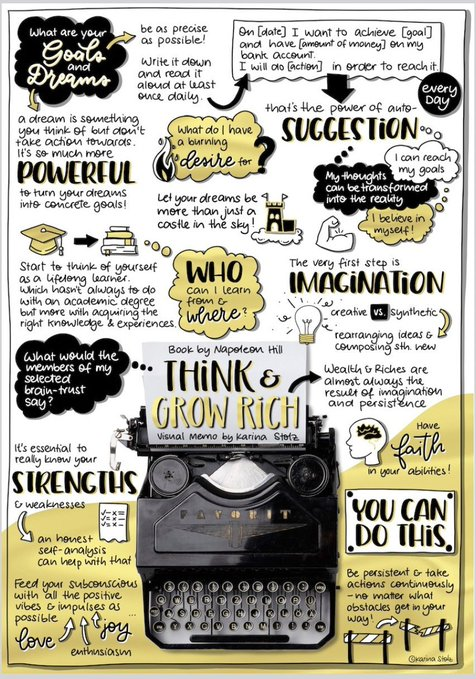 What are your
Goals
and
Dreams
be as precise
as possible!
Write it down
and read it
aloud at least
once daily.
On [date] I want to achieve [goal]
and have [amount of money] on my
bank account.
I will do [action] in order to reach it.
every
Day
a dream is something
you think of but don't
take action towards.
It's so much more
POWERFUL
to turn your dreams
into concrete goals!
What do I have
a burning
desire for
?
that's the power of auto-
SUGGESTION
I can reach
my goals
My thoughts
can be transformed
into the reality
I believe in
myself!
Let your dreams be
more than just a
castle in the sky!
Start to think of yourself
as a lifelong learner.
Which hasn't always to do
with an academic degree
but more with acquiring the
right knowledge & experiences.
WHO
can I learn
from &
where?
The very first step is
IMAGINATION
creative vs. synthetic
rearranging ideas &
composing sth. new
What would the
members of my
selected
brain-trust
say?
Book by Napoleon Hill
THINK &
GROW RICH
Visual Memo by Karina Stolz
Wealth & Riches are
almost always the
result of imagination
and persistence
Have
faith
in your abilities!
It's essential to
really know your
STRENGTHS
& weaknesses
an honest
self-analysis
can help with that
FAVORIT
YOU CAN
DO THIS.
Feed your subconscious
with all the positive
vibes & impulses as
possible ...
love
joy
enthusiasm
Be persistent & take
actions continuously
- no matter what
obstacles get in your
way!
©karina stolz